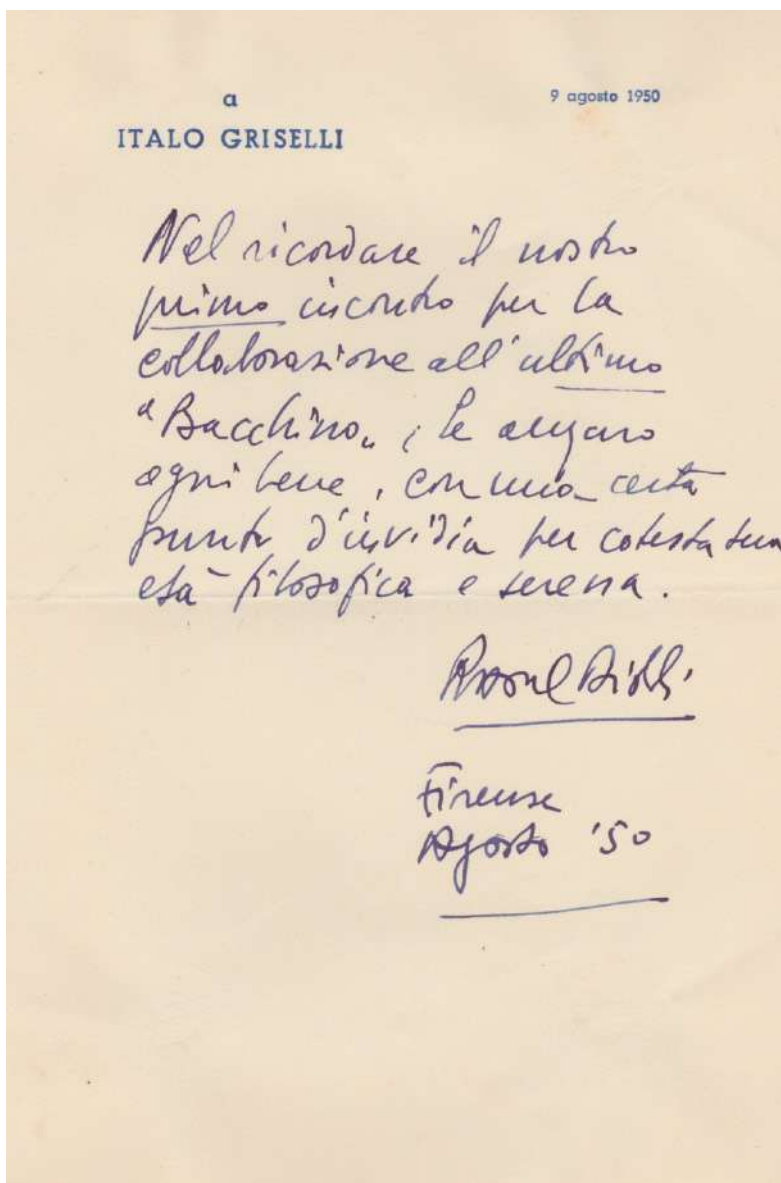 a
ITALO GRISELLI
9 agosto 1950
Nel ricordare il nostro
primo incontro per la
collaborazione all'ultimo
"Bacchino", le auguro
ogni bene, con una certa
punta d'invidia per cotesta sua
età filosofica e serena.
Raoul
Firenze
Agosto '50